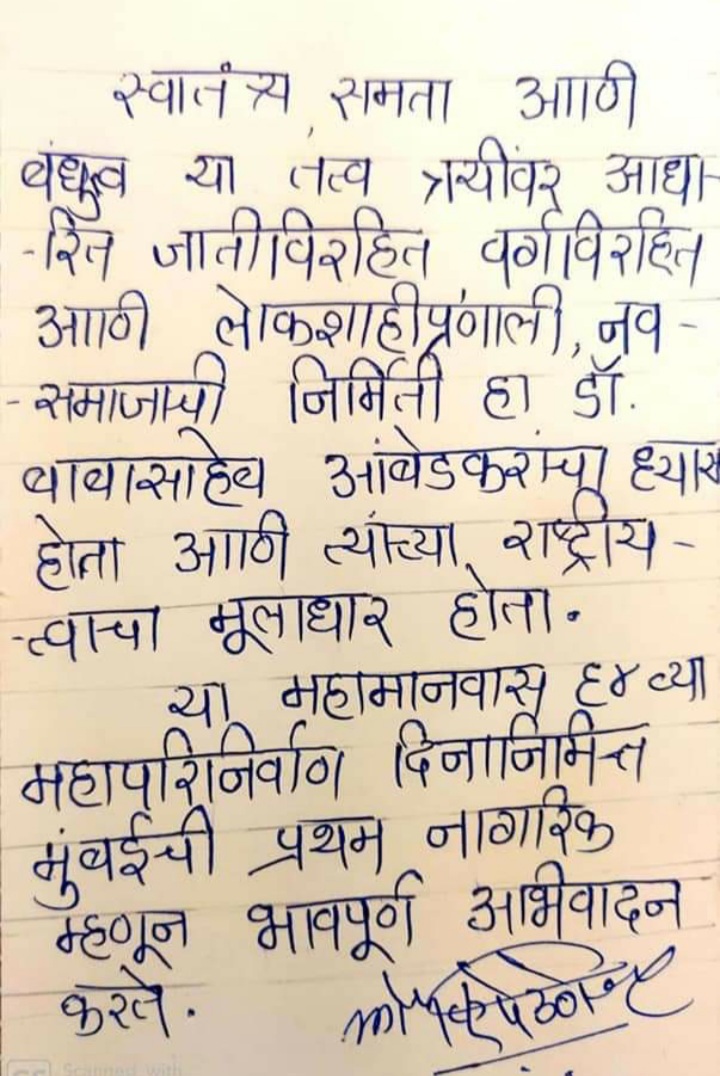 स्वातंत्र्य, समता आणि
बंधुत्व या तत्व त्रयींवर आधा-
-रित जातीविरहित वर्गविरहित
आणि लोकशाहीप्रणाली, नव-
-समाजाची निर्मिती हा डॉ.
बाबासाहेब आंबेडकरांचा ध्यास
होता आणि त्यांच्या राष्ट्रीय-
-त्वाचा मूलाधार होता.
या महामानवास ६४ व्या
महापरिनिर्वाण दिनानिमित्त
मुंबईची प्रथम नागरिक
म्हणून भावपूर्ण अभिवादन
करते.
Scanned with